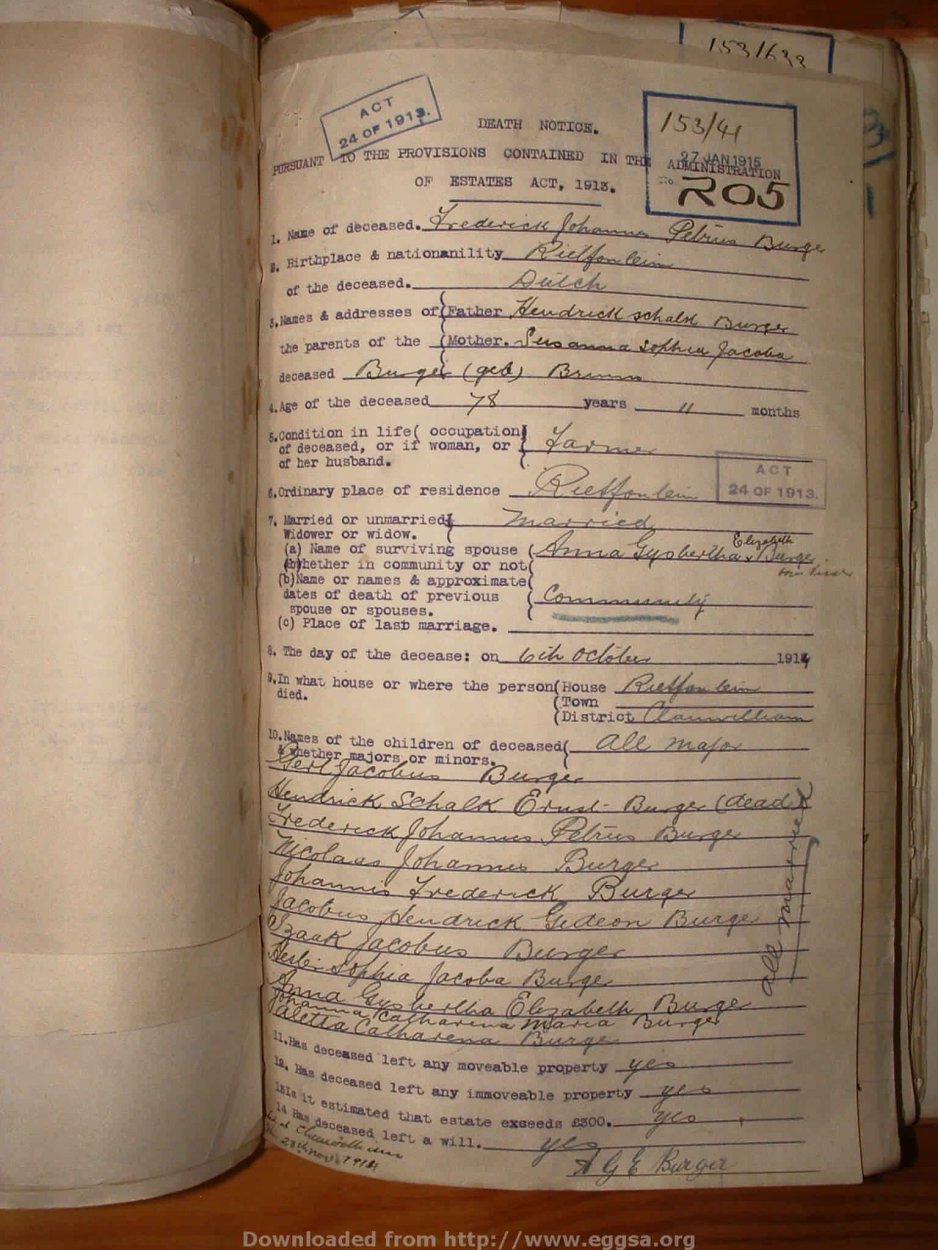 153/633
ACT
24 OF 1913.
DEATH NOTICE.
153/41
27 JAN 1915
PURSUANT TO THE PROVISIONS CONTAINED IN THE ADMINISTRATION
No R05
OF ESTATES ACT, 1913.
1. Name of deceased. Frederick Johannes Petrus Burger
2. Birthplace & nationanility Rietfontein
of the deceased. Dutch
3. Names & addresses of (Father Hendrick Schalk Burger
the parents of the (Mother. Susanna Sophia Jacoba
deceased Burger (geb)
4. Age of the deceased 78 years 11 months
5. Condition in life( occupation
of deceased, or if woman, or { Farmer
of her husband.
ACT
24 OF 1913.
6. Ordinary place of residence Rietfontein
7. Married or unmarried Married
Widower or widow.
(a) Name of surviving spouse (Anna Gysbertha Elizabeth Burger
(b)Whether in community or not(
(b)Name or names & approximate(
dates of death of previous { Community
spouse or spouses.
(c) Place of last marriage.
8. The day of the decease: on 6th October 1914
9. In what house or where the person(House Rietfontein
died. (Town
(District Clanwilliam
10. Names of the children of deceased( all major
& whether majors or minors.
Gert Jacobus Burger
Hendrick Schalk Ernst Burger (dead)
Frederick Johannes Petrus Burger
Nicolaas Johannes Burger
Johannis Frederick Burger
Jacobus Hendrick Gideon Burger
Izaak Jacobus Burger
Sophia Jacoba Burger
Anna Gysbertha Elizabeth Burger
Johanna Catharena Maria Burger
Aletta Catharena Burger
all married
11. Has deceased left any moveable property yes
12. Has deceased left any immoveable property yes
13 Is it estimated that estate exceeds £300. yes
14 Has deceased left a will. yes
at Clanwilliam
28th Nov 1914
A G E Burger
Downloaded from http://www.eggsa.org